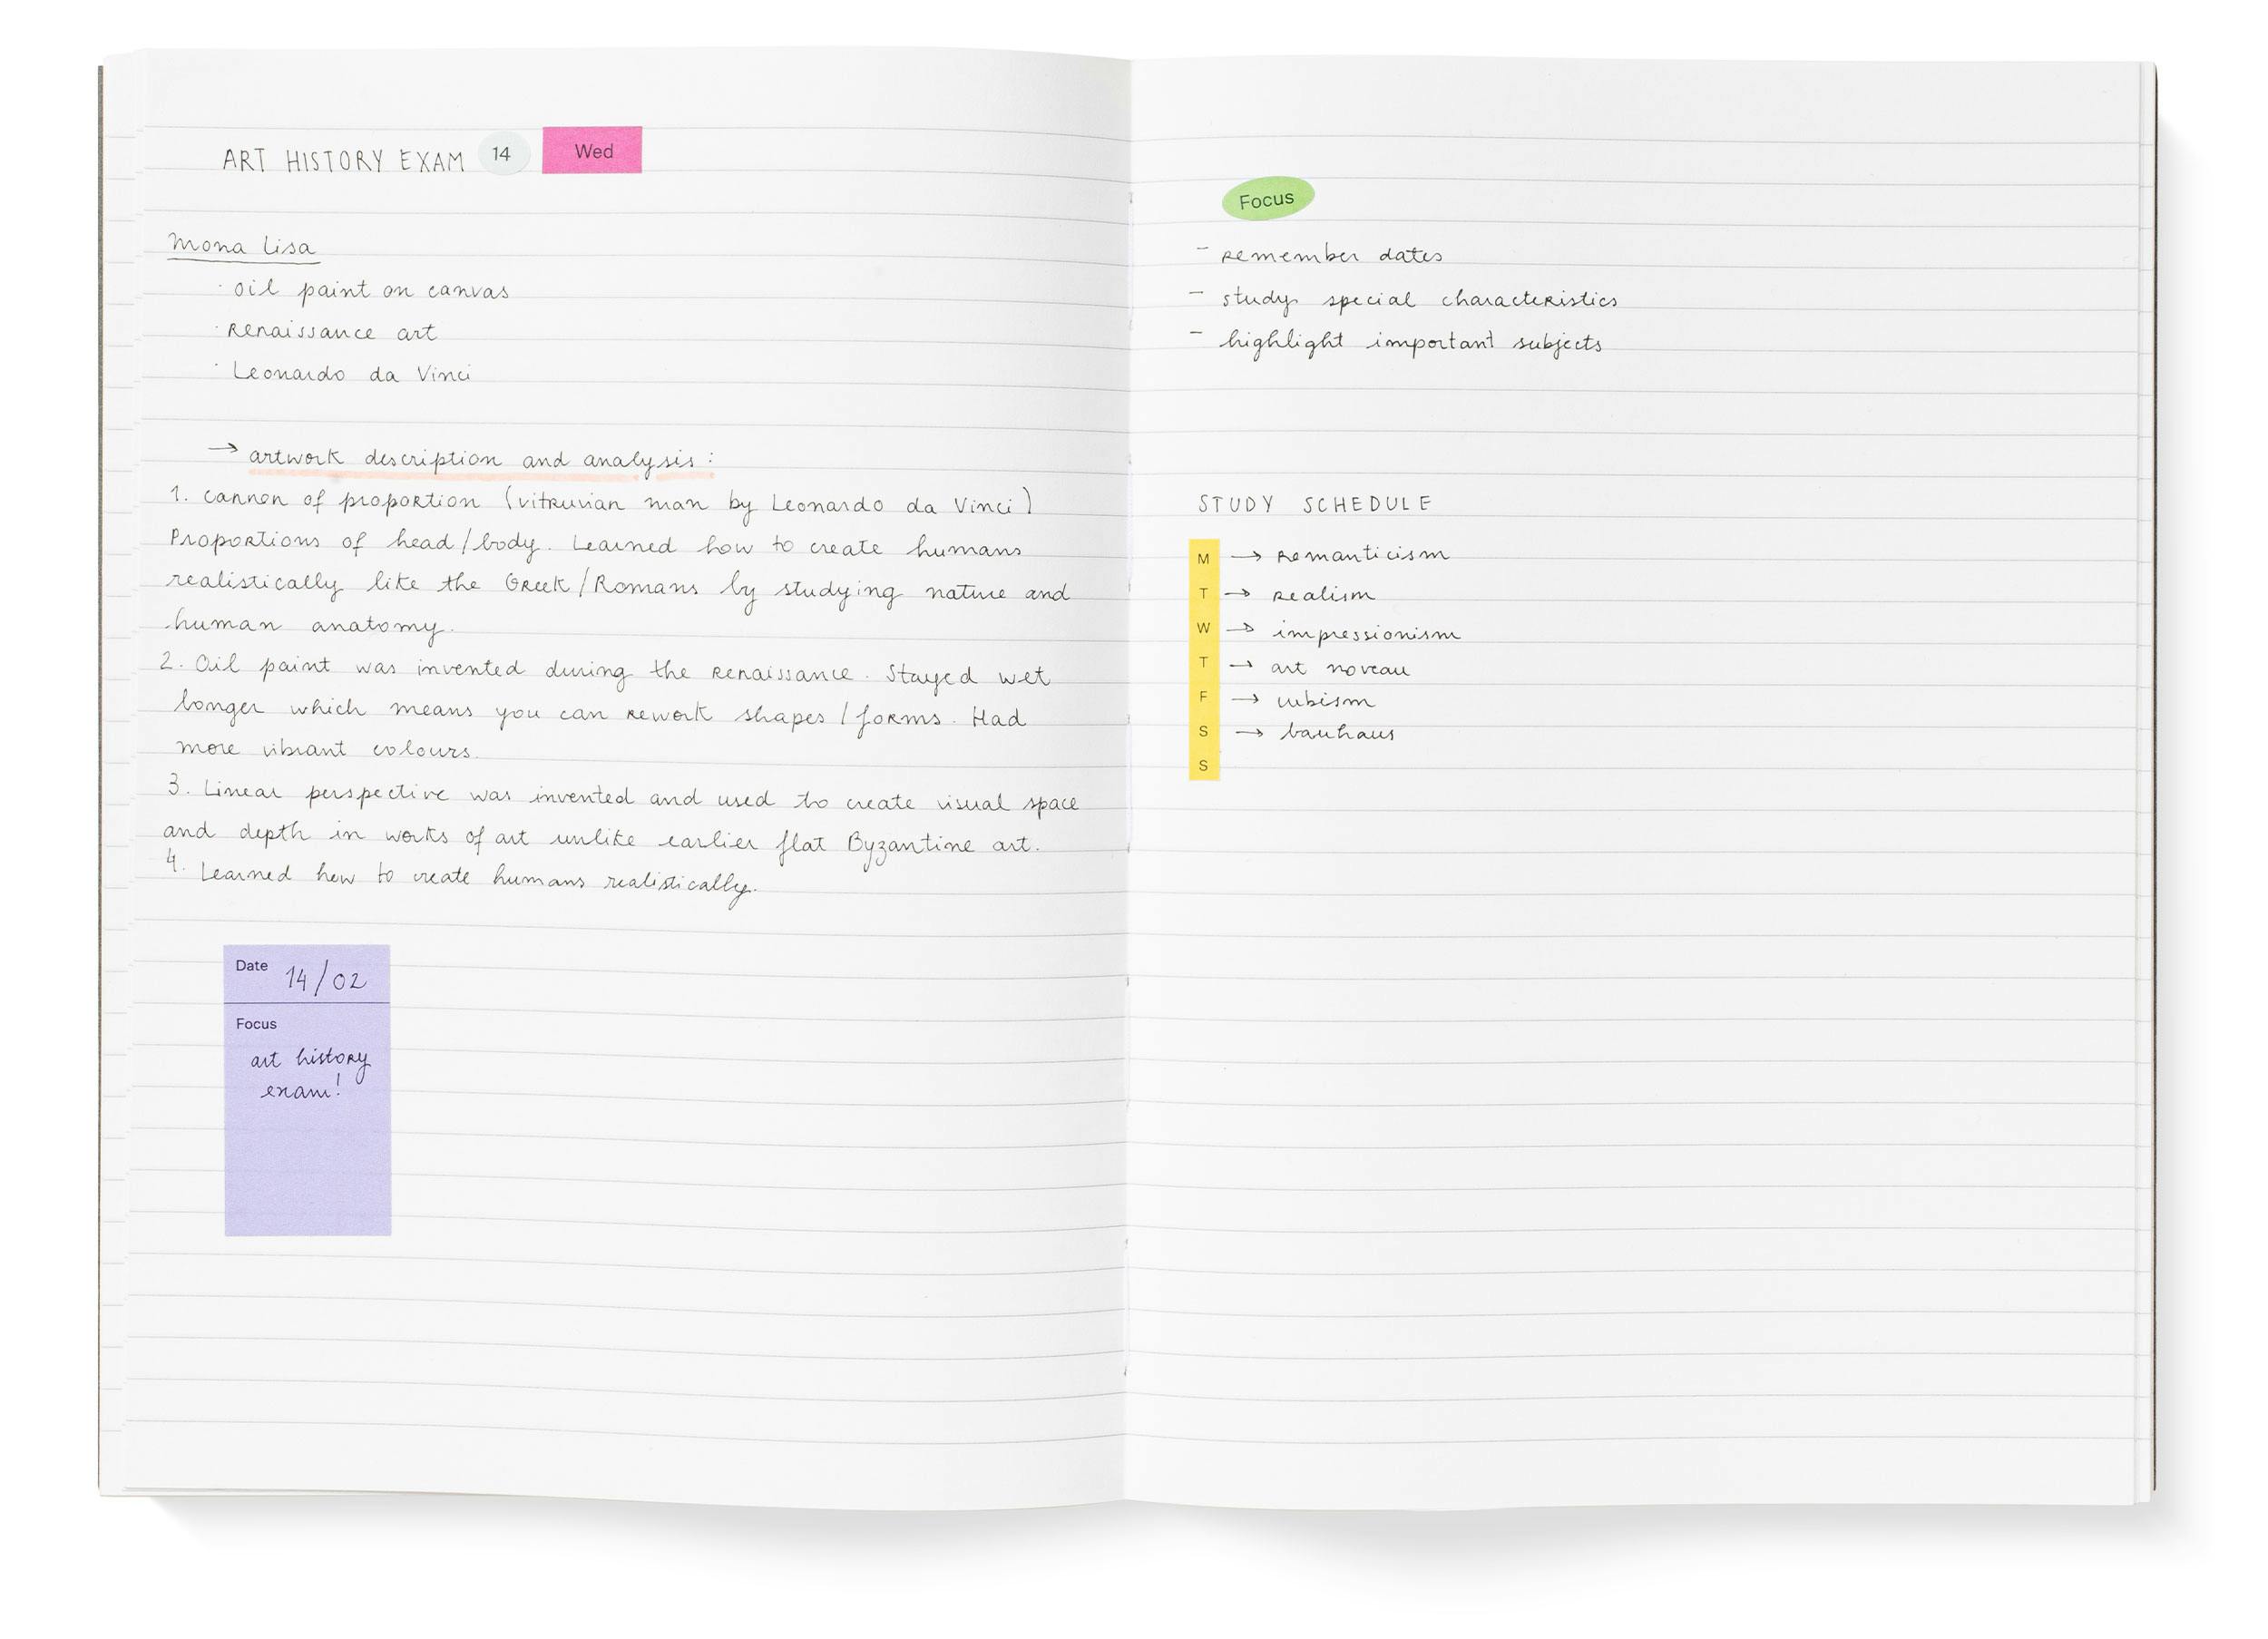 ART HISTORY EXAM 14 Wed
Mona Lisa
· oil paint on canvas
· Renaissance art
· Leonardo da Vinci
→ artwork description and analysis :
1. cannon of proportion (vitruvian man by Leonardo da Vinci)
Proportions of head/body. Learned how to create humans
realistically like the Greek/Romans by studying nature and
human anatomy.
2. Oil paint was invented during the Renaissance. Stayed wet
longer which means you can rework shapes / forms. Had
more vibrant colours.
3. Linear perspective was invented and used to create visual space
and depth in works of art unlike earlier flat Byzantine art.
4. Learned how to create humans realistically.
Date 14/02
Focus
art history
exam!
Focus
- remember dates
- study special characteristics
- highlight important subjects
STUDY SCHEDULE
M → romanticism
T → realism
W → impressionism
T → art noveau
F → cubism
S → bauhaus
S